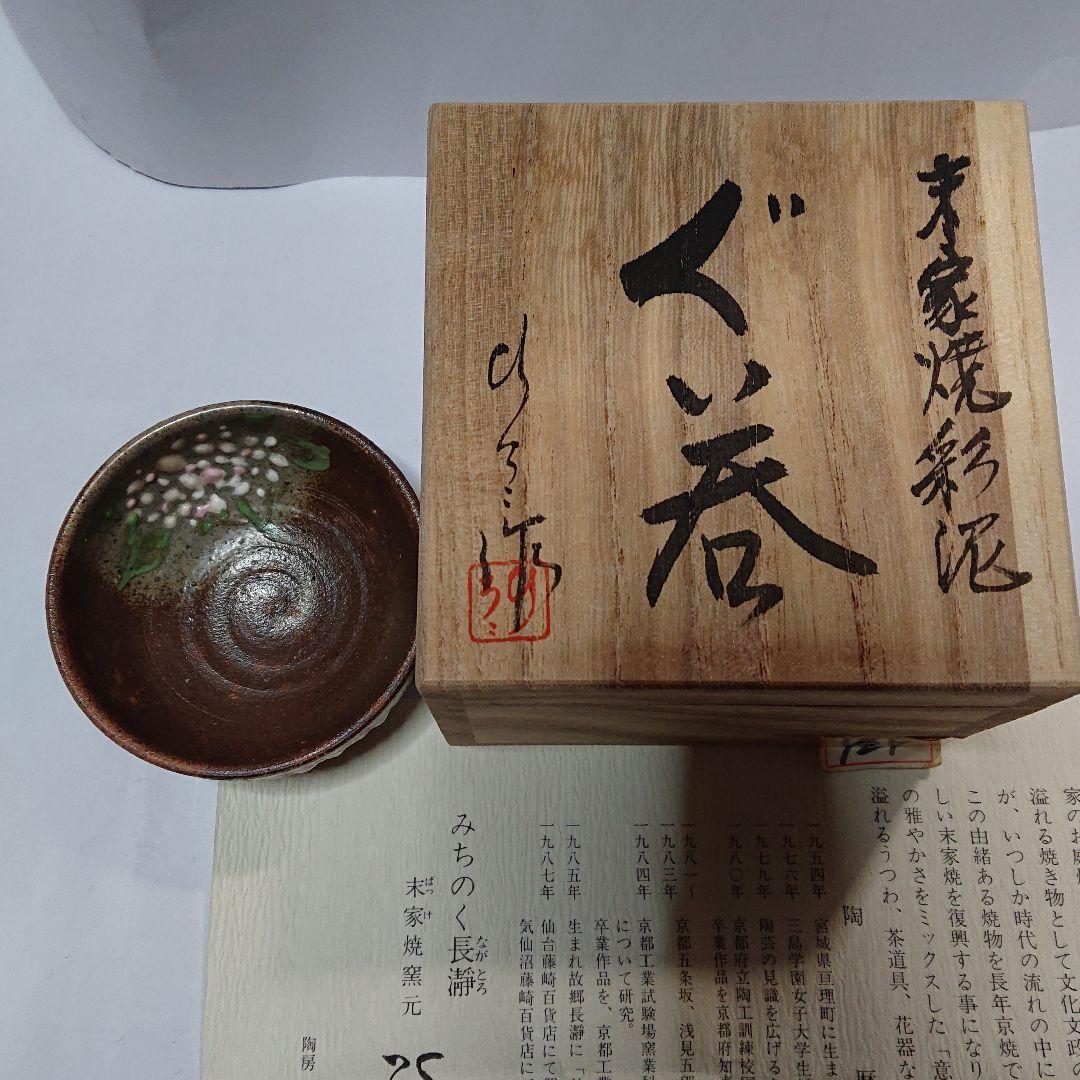 末家焼彩泥
ぐい呑
家のお庭焼
溢れる焼き物として文化文政の
が、いつしか時代の流れの中に
この由緒ある焼物を長年京焼で
しい末家焼を復興する事になり
の雅やかさをミックスした「意
溢れるうつわ、茶道具、花器な
陶 歴
一九五四年 宮城県亘理町に生ま
一九七六年 三島学園女子大学生
一九七九年 陶芸の見識を広げる
一九八〇年 京都府立陶工訓練校
卒業作品を京都府知事
一九八一~ 京都五条坂、浅見五郎
一九八三年
一九八四年 京都工業試験場窯業科
について研究。
卒業作品を、京都工業
一九八五年 生まれ故郷長瀞に「
一九八七年 仙台藤崎百貨店にて
気仙沼藤崎百貨店に
みちのく長瀞
ながとろ
末家焼窯元
ばっけ
陶房